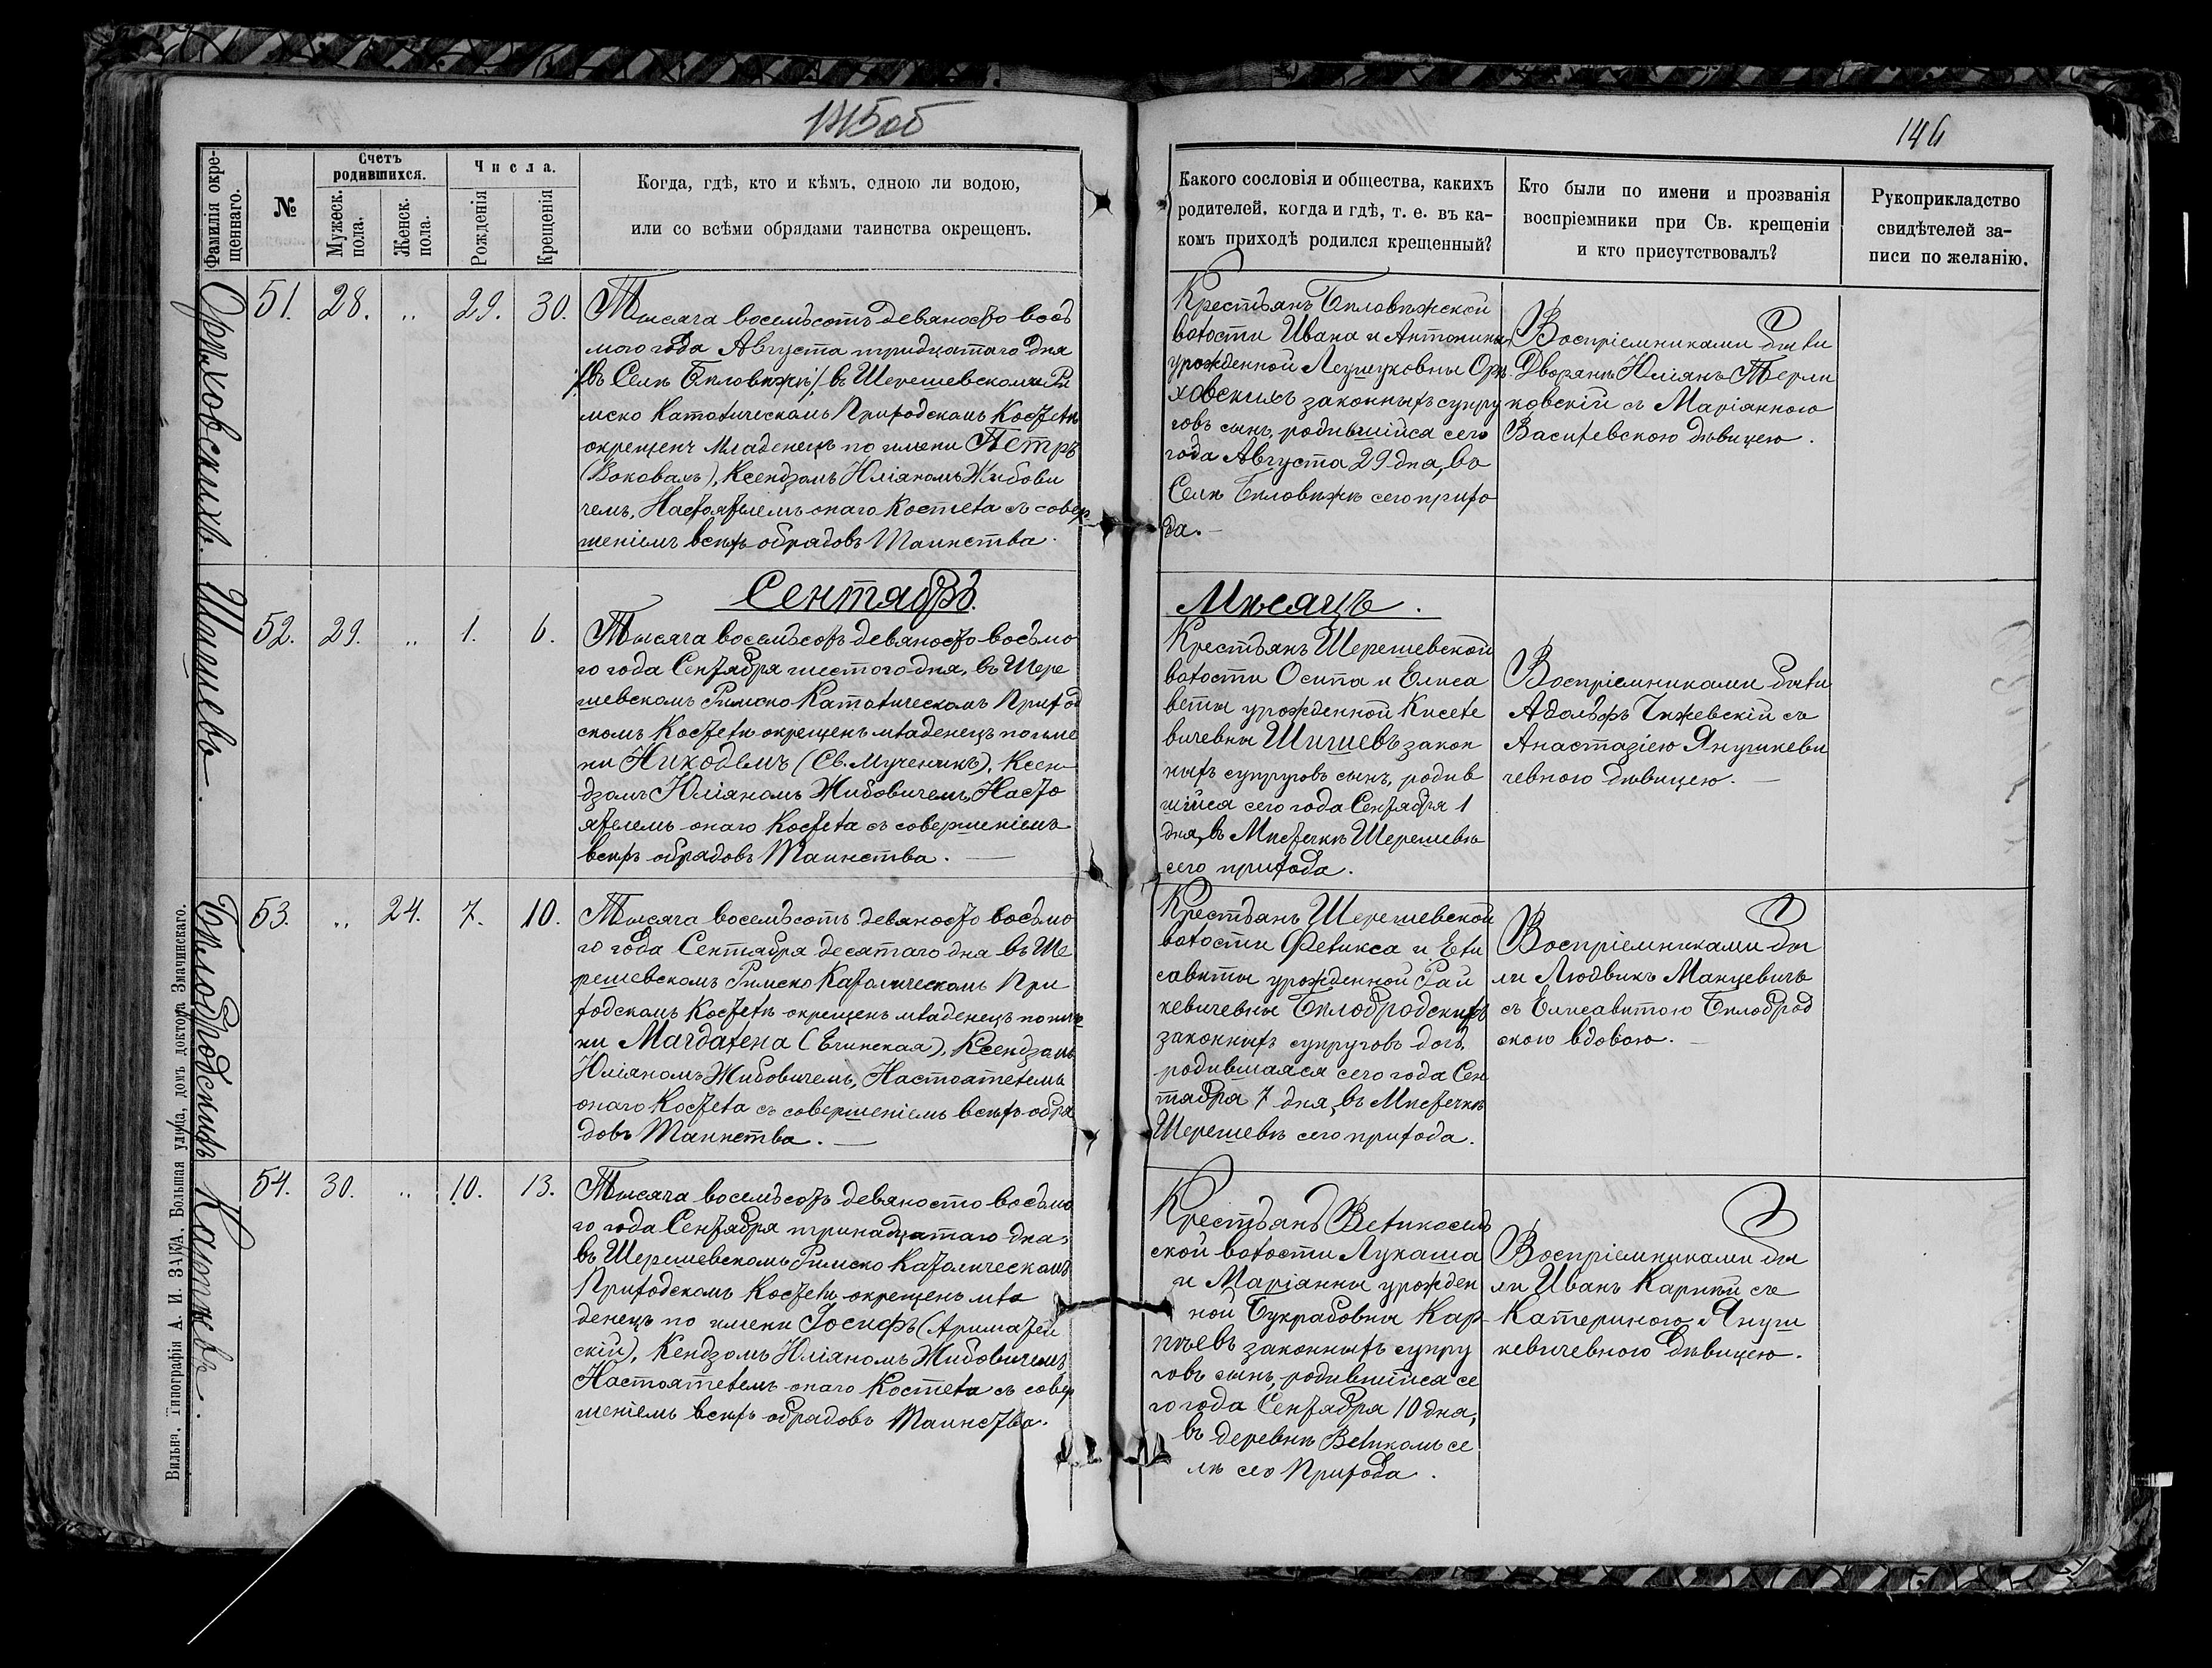 145об
146
Фамилія окре-
щеннаго.
№
Счетъ
родившихся.
Мужеск.
пола.
Женск.
пола.
Числа.
Рожденія
Крещенія
Когда, гдѣ, кто и кѣмъ, одною ли водою,
или со всѣми обрядами таинства окрещенъ.
Какого сословія и общества, какихъ
родителей, когда и гдѣ, т. е. въ ка-
комъ приходѣ родился крещенный?
Кто были по имени и прозванія
воспріемники при Св. крещеніи
и кто присутствовалъ?
Рукоприкладство
свидѣтелей за-
писи по желанію.
Орѣховскихъ.
51. 28. „ 29. 30.
Тысяча восемьсотъ девяносто вось
мого года Августа тридцатаго дня
/въ Селѣ Бѣловѣжѣ/ въ Шерешевскомъ Ри
мско Католическомъ Приходскомъ Костелѣ
окрещенъ младенецъ по имени Петръ
Ксендзомъ Юліяномъ Жибови
чемъ, Настоятелемъ онаго Костела съ совер
шеніемъ всѣхъ обрядовъ Таинства.
Крестьянъ Бѣловѣжской
волости Ивана и Антонины
урожденной Леушуковны Орѣ
ховскихъ законныхъ супру
говъ сынъ, родившійся сего
года Августа 29 дня, въ
Селѣ Бѣловѣжѣ сего прихо
да.—
Воспріемниками были
Дворянъ Юліянъ Терли
ковскій съ Маріянною
Василевскою дѣвицею.
Сентябрь.
Мѣсяцъ.
Шишево.
52. 29. „ 1. 6.
Тысяча восемьсотъ девяносто восьмо
го года Сентября шестого дня, въ Шере
шевскомъ Римско Католическомъ Приход
скомъ Костелѣ окрещенъ младенецъ по име
ни Никодемъ (Св. Мученикъ), Ксен
дзомъ Юліяномъ Жибовичемъ, Насто
ятелемъ онаго Костела съ совершеніемъ
всѣхъ обрядовъ Таинства.—
Крестьянъ Шерешевской
волости Осипа и Елиса
веты урожденной Киселе
вичевны Шишевъ закон
ныхъ супруговъ сынъ, родив
шійся сего года Сентября 1
дня, въ Мѣстечкѣ Шерешевѣ
сего прихода.
Воспріемниками были
Адольфъ Бижевскій съ
Анастазіею Янушкеви
чевною дѣвицею.—
Бѣлобродскихъ
53. „ 24. 7. 10.
Тысяча восемьсотъ девяносто восьмо
го года Сентября десятаго дня въ Ше
решевскомъ Римско Католическомъ При
ходскомъ Костелѣ окрещенъ младенецъ по име
ни Магдалена (Егинская), Ксендзомъ
Юліяномъ Жибовичемъ, Настоятелемъ
онаго Костела съ совершеніемъ всѣхъ обря
довъ Таинства.—
Крестьянъ Шерешевской
волости Феликса и Ели
саветы урожденной Рай
кевичевны Бѣлобродскихъ
законныхъ супруговъ дочь,
родившаяся сего года Сен
тября 7 дня, въ Мѣстечкѣ
Шерешевѣ сего прихода.
Воспріемниками бы
ли Людвикъ Манцевичъ
съ Елисаветою Бѣлоброд
скою вдовою.—
Карпѣевъ.
54. 30. „ 10. 13.
Тысяча восемьсотъ девяносто восьмо
го года Сентября тринадцатаго дня
въ Шерешевскомъ Римско Католическомъ
Приходскомъ Костелѣ окрещенъ мла
денецъ по имени Іосифъ (Ариматей
скій), Кендзомъ Юліяномъ Жибовичемъ
Настоятелемъ онаго Костела съ совер
шеніемъ всѣхъ обрядовъ Таинства.
Крестьянъ Великосель
ской волости Лукаша
и Маріанны урожден
ной Букрабовны Кар
пѣевъ законныхъ супру
говъ сынъ, родившійся се
го года Сентября 10 дня,
въ деревнѣ Великомъ се
лѣ сего Прихода.
Воспріемниками бы
ли Иванъ Карпѣй съ
Катериною Януш
кевичевною дѣвицею.
Вильна, Типографія А. И. ЗАКА, Большая улица, домъ доктора Змачинскаго.